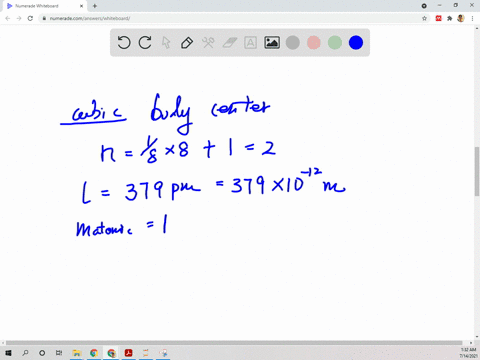 Numerade Whiteboard
numerade.com/answers/whiteboard/
cubic body center
n = 1/8 × 8 + 1 = 2
l = 379 pm = 379 × 10⁻¹² m
Matomic = 1
1:32 AM
7/14/2021